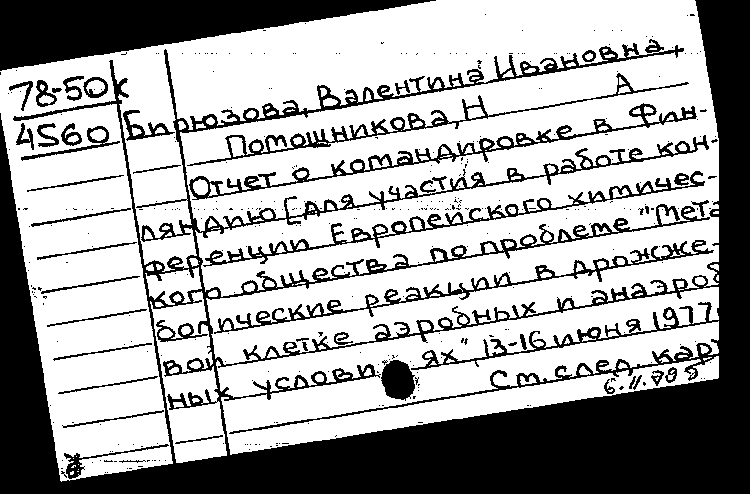 78-50к
4560
Бирюзова, Валентина Ивановна,
Помощникова, Н А
Отчет о командировке в Фин-
ляндию [для участия в работе кон-
ференции Европейского химичес-
кого общества по проблеме "Мета
болические реакции в дрожже-
вой клетке аэробных и анаэроб
ных услови ях", 13-16 июня 1977
См. след. кар